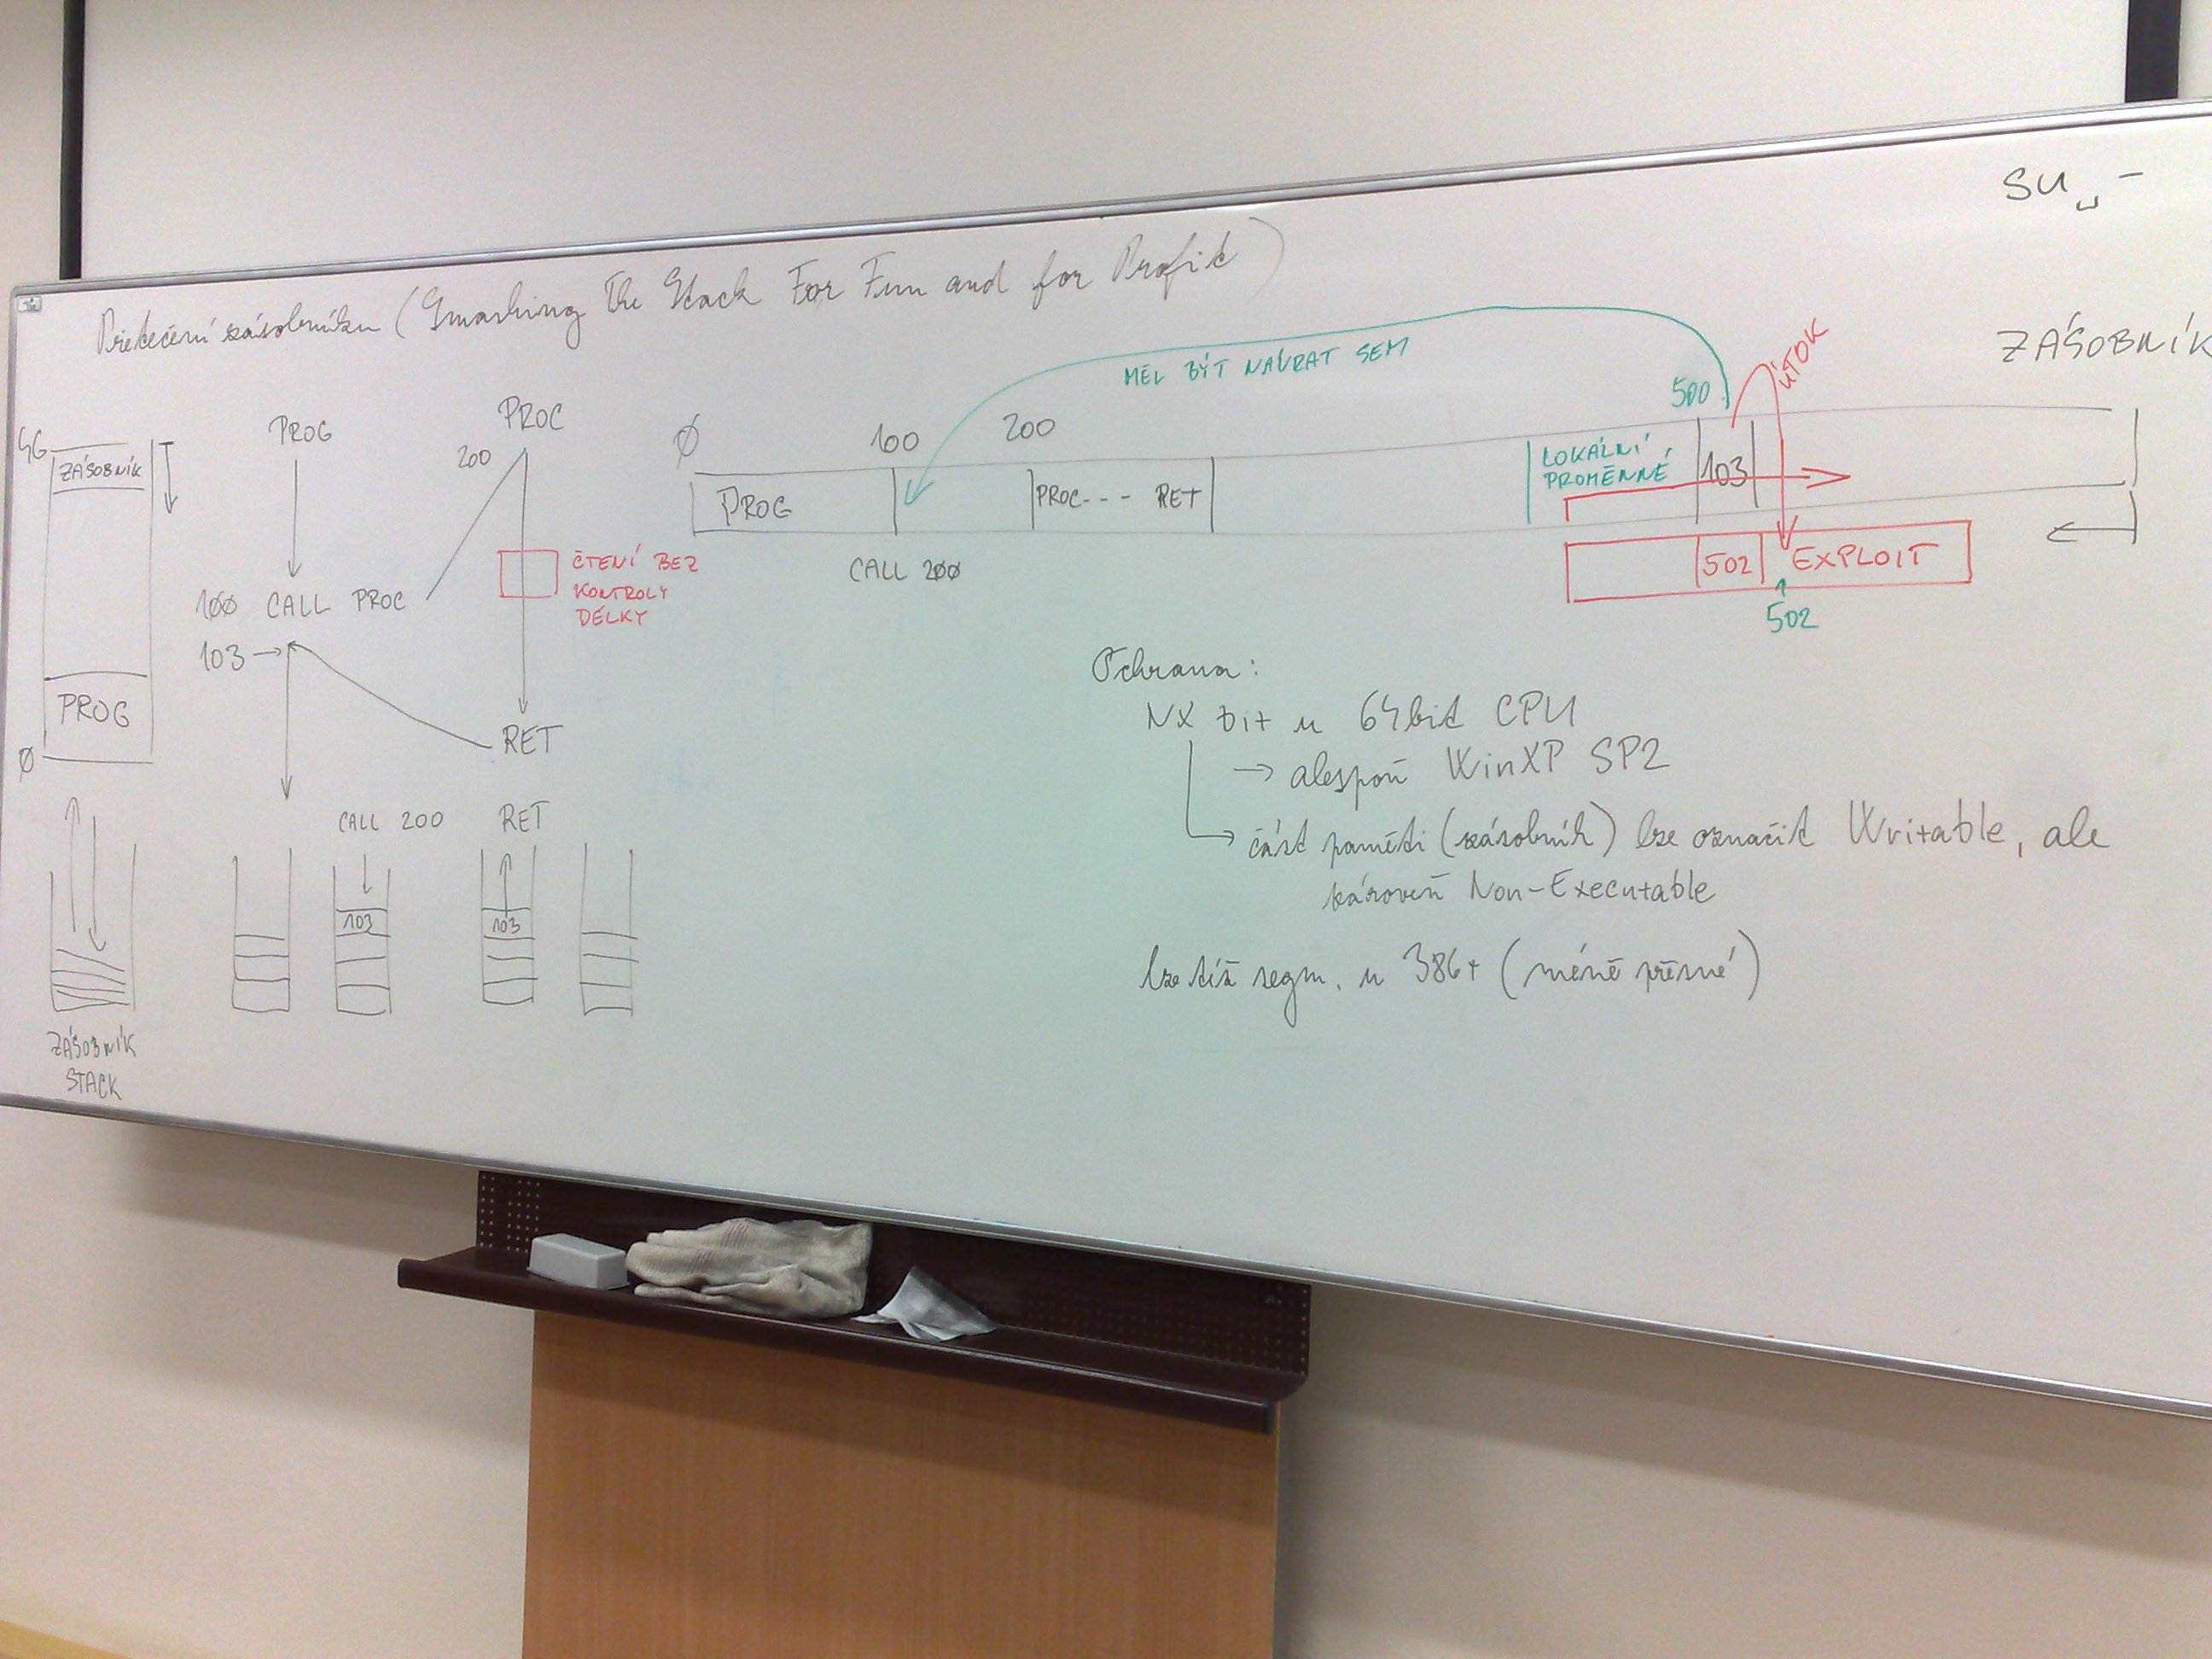 SU ␣ -
Přetečení zásobníku (Smashing The Stack For Fun and for Profit)
ZÁSOBNÍK
4G
ZÁSOBNÍK
PROG
Ø
ZÁSOBNÍK
STACK
PROG
100 CALL PROC
103 →
PROC
200
ČTENÍ BEZ
KONTROLY
DÉLKY
RET
CALL 200
RET
103
103
MĚL BÝT NÁVRAT SEM
ÚTOK
Ø
100
200
500
PROG
PROC--- RET
LOKÁLNÍ
PROMĚNNÉ
103
CALL 200
502
EXPLOIT
502
Ochrana:
NX bit u 64bit CPU
→ alespoň WinXP SP2
→ část paměti (zásobník) lze označit Writable, ale
zároveň Non-Executable
lze též segm. u 386+ (méně přesné)